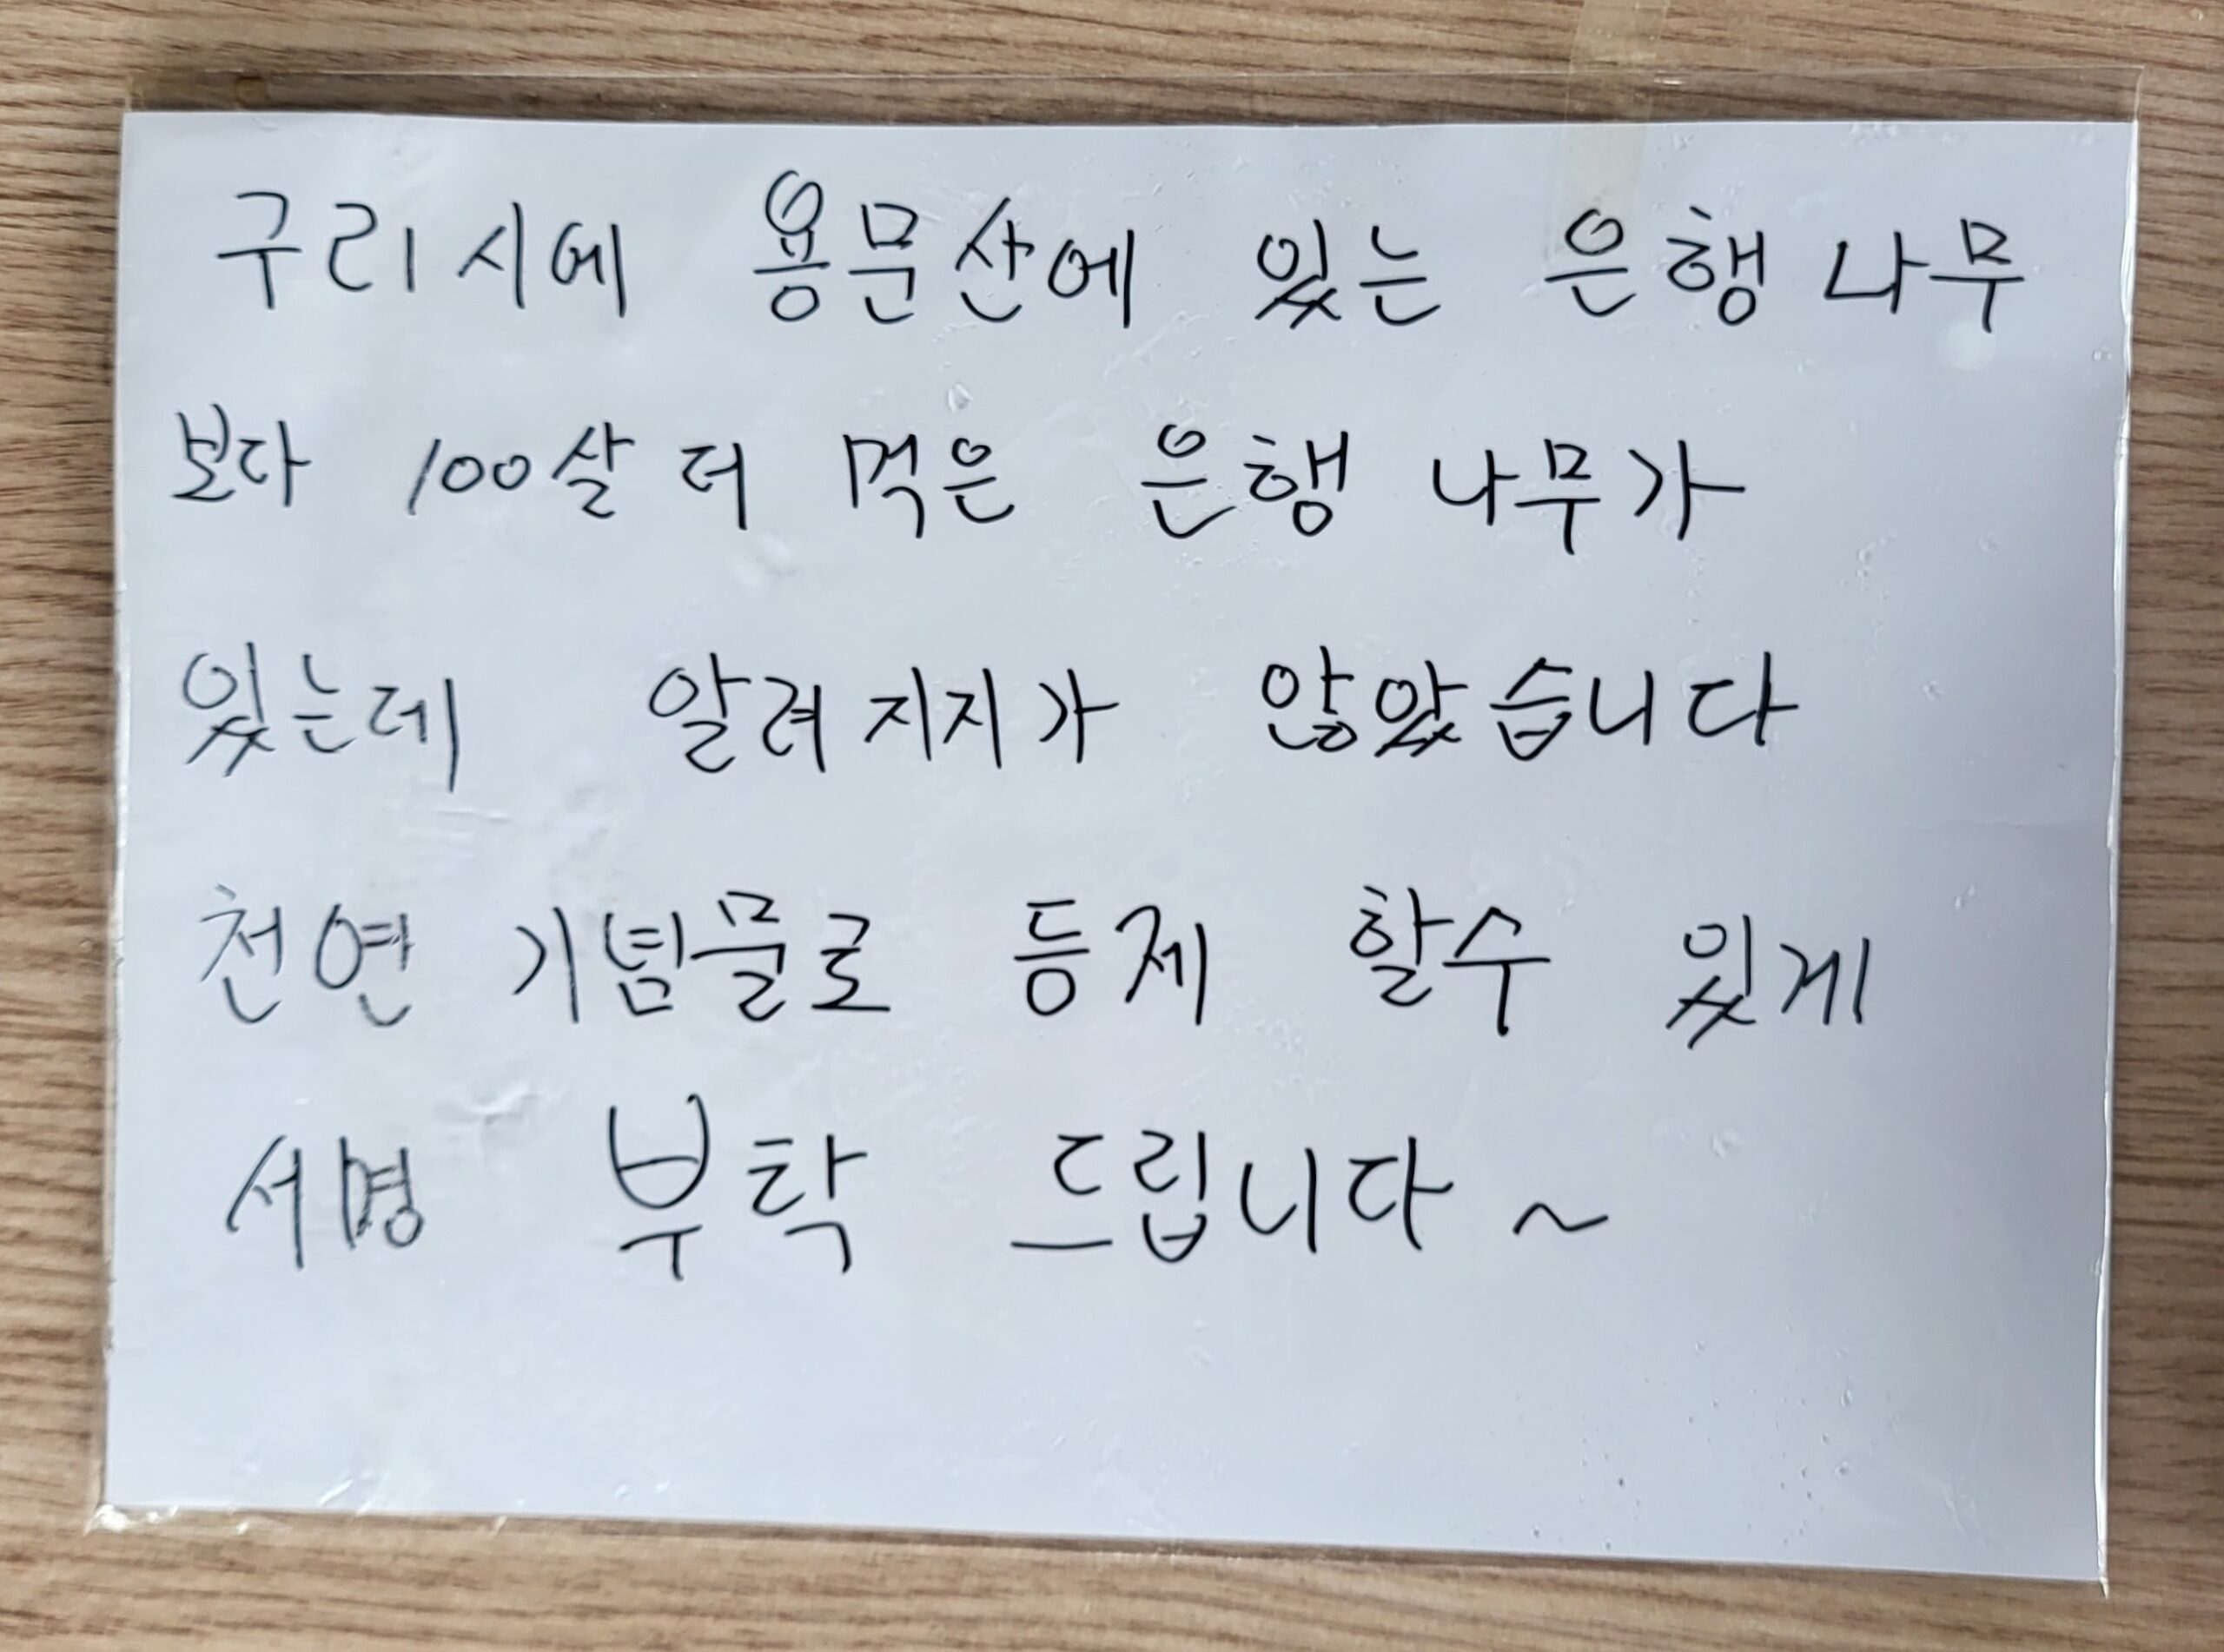 구리시에 용문산에 있는 은행나무
보다 100살 더 먹은 은행 나무가
있는데 알려지지가 않았습니다
천연 기념물로 등제 할수 있게
서명 부탁 드립니다~